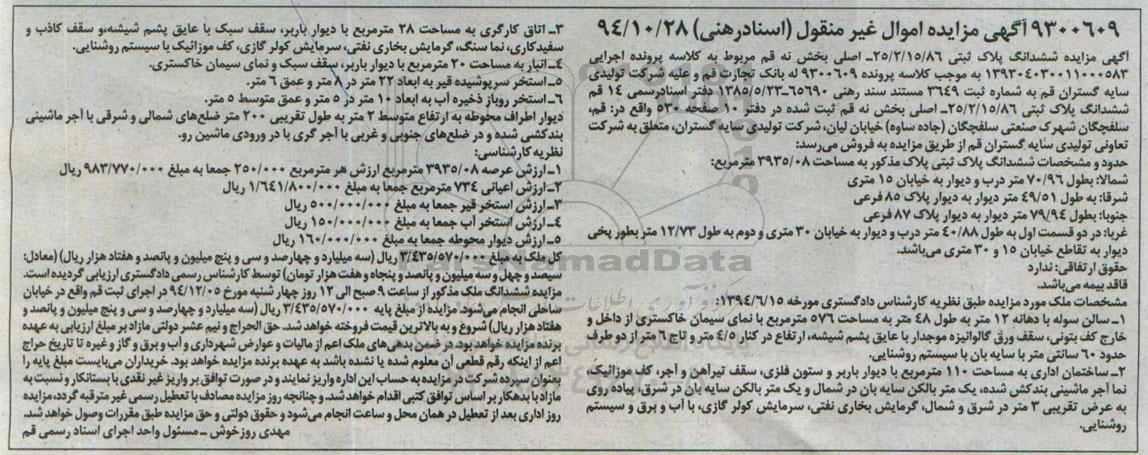 ۹۳۰۰۶۰۹ آگهی مزایده اموال غیر منقول (اسنادرهنی) ۹۴/۱۰/۲۸
آگهی مزایده ششدانگ پلاک ثبتی ۲۵/۲/۱۵/۸۶- اصلی بخش نه قم مربوط به کلاسه پرونده اجرایی
۱۳۹۳۰۴۰۳۰۰۱۱۰۰۰۵۸۳ به موجب کلاسه پرونده ۹۳۰۰۶۰۹ له بانک تجارت قم و علیه شرکت تولیدی
سایه گستران قم به شماره ثبت ۳۶۴۹ مستند سند رهنی ۶۵۶۹۰-۱۳۸۵/۵/۲۳ دفتر اسنادرسمی ۱۴ قم
ششدانگ پلاک ثبتی ۲۵/۲/۱۵/۸۶- اصلی بخش نه قم ثبت شده در دفتر ۱۰ صفحه ۵۳۰ واقع در: قم،
سلفچگان شهرک صنعتی سلفچگان (جاده ساوه) خیابان لیان، شرکت تولیدی سایه گستران، متعلق به شرکت
تعاونی تولیدی سایه گستران قم از طریق مزایده به فروش می‌رسد:
حدود و مشخصات ششدانگ پلاک ثبتی پلاک مذکور به مساحت ۳۹۳۵/۰۸ مترمربع:
شمالا: بطول ۷۰/۹۶ متر درب و دیوار به خیابان ۱۵ متری
شرقا: به طول ۴۹/۵۱ متر دیوار به دیوار پلاک ۸۵ فرعی
جنوبا: بطول ۷۹/۹۴ متر دیوار به دیوار پلاک ۸۷ فرعی
غربا: در دو قسمت اول به طول ۴۰/۸۸ متر درب و دیوار به خیابان ۳۰ متری و دوم به طول ۱۲/۷۳ متر بطور پخی
دیوار به تقاطع خیابان ۱۵ و ۳۰ متری می‌باشد.
حقوق ارتفاقی: ندارد
فاقد بیمه می‌باشد.
مشخصات ملک مورد مزایده طبق نظریه کارشناس دادگستری مورخه ۱۳۹۴/۶/۱۵:
۱- سالن سوله با دهانه ۱۲ متر به طول ۴۸ متر به مساحت ۵۷۶ مترمربع با نمای سیمان خاکستری از داخل و
خارج کف بتونی، سقف ورق گالوانیزه موجدار با عایق پشم شیشه، ارتفاع در کنار ۴/۵ متر و تاج ۶ متر از دو طرف
حدود ۶۰ سانتی متر با سایه بان با سیستم روشنایی.
۲- ساختمان اداری به مساحت ۱۱۰ مترمربع با دیوار باربر و ستون فلزی، سقف تیرآهن و آجر، کف موزائیک،
نما آجر ماشینی بندکشی شده، یک متر بالکن سایه بان در شمال و یک متر بالکن سایه بان در شرق، پیاده روی
به عرض تقریبی ۳ متر در شرق و شمال، گرمایش بخاری نفتی، سرمایش کولر گازی، با آب و برق و سیستم
روشنایی.
۳- اتاق کارگری به مساحت ۲۸ مترمربع با دیوار باربر، سقف سبک با عایق پشم شیشه،و سقف کاذب و
سفیدکاری، نما سنگ، گرمایش بخاری نفتی، سرمایش کولر گازی، کف موزائیک با سیستم روشنایی.
۴- انبار به مساحت ۲۰ مترمربع با دیوار باربر، سقف سبک و نمای سیمان خاکستری.
۵- استخر سرپوشیده قیر به ابعاد ۲۲ متر در ۸ متر و عمق ۶ متر.
۶- استخر روباز ذخیره آب به ابعاد ۱۰ متر در ۵ متر و عمق متوسط ۵ متر.
دیوار اطراف محوطه به ارتفاع متوسط ۲ متر به طول تقریبی ۲۰۰ متر ضلع‌های شمالی و شرقی با آجر ماشینی
بندکشی شده و در ضلع‌های جنوبی و غربی با آجر گری با در ورودی ماشین رو.
نظریه کارشناسی:
۱- ارزش عرصه ۳۹۳۵/۰۸ مترمربع ارزش هر مترمربع ۲۵۰/۰۰۰ جمعا به مبلغ ۹۸۳/۷۷۰/۰۰۰ ریال
۲- ارزش اعیانی ۷۳۴ مترمربع جمعا به مبلغ ۱/۶۴۱/۸۰۰/۰۰۰ ریال
۳- ارزش استخر قیر جمعا به مبلغ ۵۰۰/۰۰۰/۰۰۰ ریال
۴- ارزش استخر آب جمعا به مبلغ ۱۵۰/۰۰۰/۰۰۰ ریال
۵- ارزش دیوار محوطه جمعا به مبلغ ۱۶۰/۰۰۰/۰۰۰ ریال
کل ملک به مبلغ ۳/۴۳۵/۵۷۰/۰۰۰ ریال (سه میلیارد و چهارصد و سی و پنج میلیون و پانصد و هفتاد هزار ریال) (معادل:
سیصد و چهل و سه میلیون و پانصد و پنجاه و هفت هزار تومان) توسط کارشناس رسمی دادگستری ارزیابی گردیده است.
مزایده ششدانگ ملک مذکور از ساعت ۹ صبح الی ۱۲ روز چهار شنبه مورخ ۹۴/۱۲/۰۵ در اجرای ثبت قم واقع در خیابان
ساحلی انجام می‌شود. مزایده از مبلغ پایه ۳/۴۳۵/۵۷۰/۰۰۰ ریال (سه میلیارد و چهارصد و سی و پنج میلیون و پانصد و
هفتاد هزار ریال) شروع و به بالاترین قیمت فروخته خواهد شد. حق الحراج و نیم عشر دولتی مازاد بر مبلغ ارزیابی به عهده
برنده مزایده خواهد بود. در ضمن بدهی‌های ملک اعم از مالیات و عوارض شهرداری و آب و برق و گاز و غیره تا تاریخ حراج
اعم از اینکه رقم قطعی آن معلوم شده یا نشده باشد به عهده برنده مزایده خواهد بود. خریداران می‌بایست مبلغ پایه را
بعنوان سپرده شرکت در مزایده به حساب این اداره واریز نمایند و در صورت توافق بر واریز غیر نقدی با بستانکار و نسبت به
مازاد با بدهکار بر اساس توافق کتبی اقدام خواهد شد. و چنانچه روز مزایده مصادف با تعطیل رسمی غیر مترقبه گردد، مزایده
روز اداری بعد از تعطیل در همان محل و ساعت انجام می‌شود و حقوق دولتی و حق مزایده طبق مقررات وصول خواهد شد.
مهدی روزخوش - مسئول واحد اجرای اسناد رسمی قم